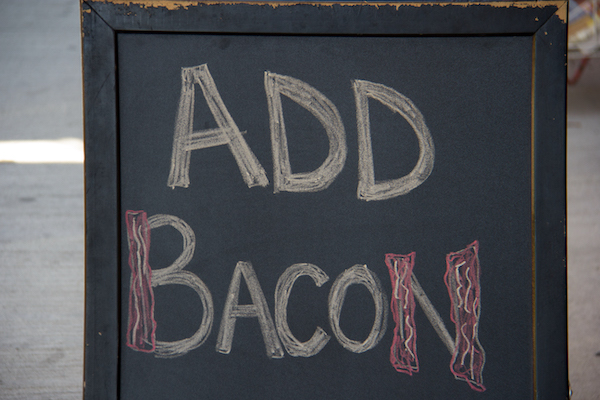 ADD
BACON